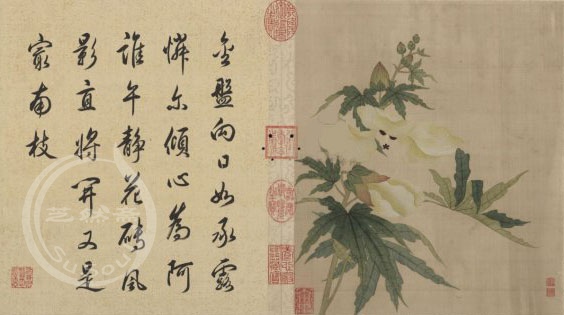 金盤向日如承露
憐尔傾心為阿
誰午静花磚風
影直將開又是
最南枝